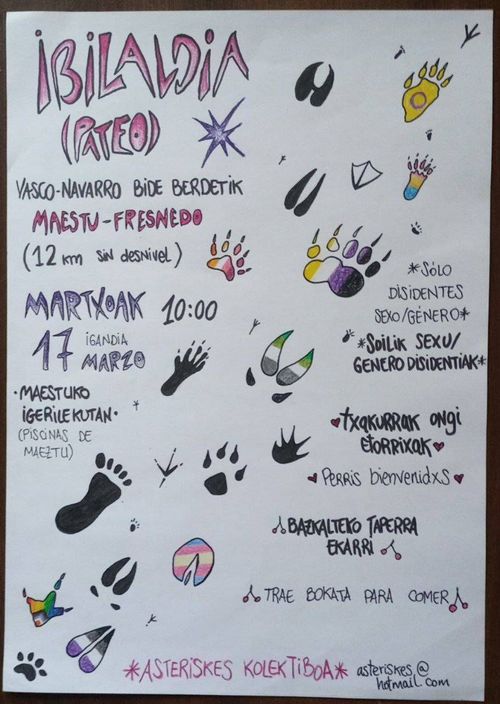 IBILALDIA
(PATEO)
VASCO-NAVARRO BIDE BERDETIK
MAESTU-FRESNEDO
(12 km sin desnivel)
MARTXOAK 10:00
17 IGANDIA
MARZO
·MAESTUKO
IGERILEKUTAN·
(PISCINAS DE
MAEZTU)
*SÓLO
DISIDENTES
SEXO/GÉNERO*
*SOILIK SEXU/
GENERO DISIDENTIAK*
txakurrak ongi
etorrixak
Perris bienvenidxs
BAZKALTEKO TAPERRA
EKARRI
TRAE BOKATA PARA COMER
*ASTERISKES KOLEKTIBOA*
asteriskes@
hotmail.com